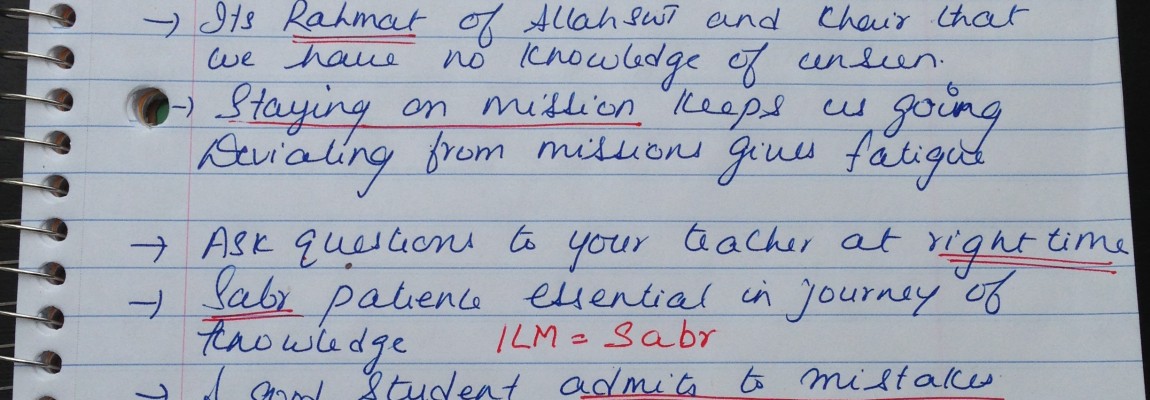 → Its Rahmat of Allah swt and Khair that
we have no knowledge of unseen.
→ Staying on mission keeps us going
Deviating from missions gives fatigue
→ Ask questions to your teacher at right time
→ Sabr patience essential in journey of
knowledge ILM = Sabr
→ A good student admits to mistakes